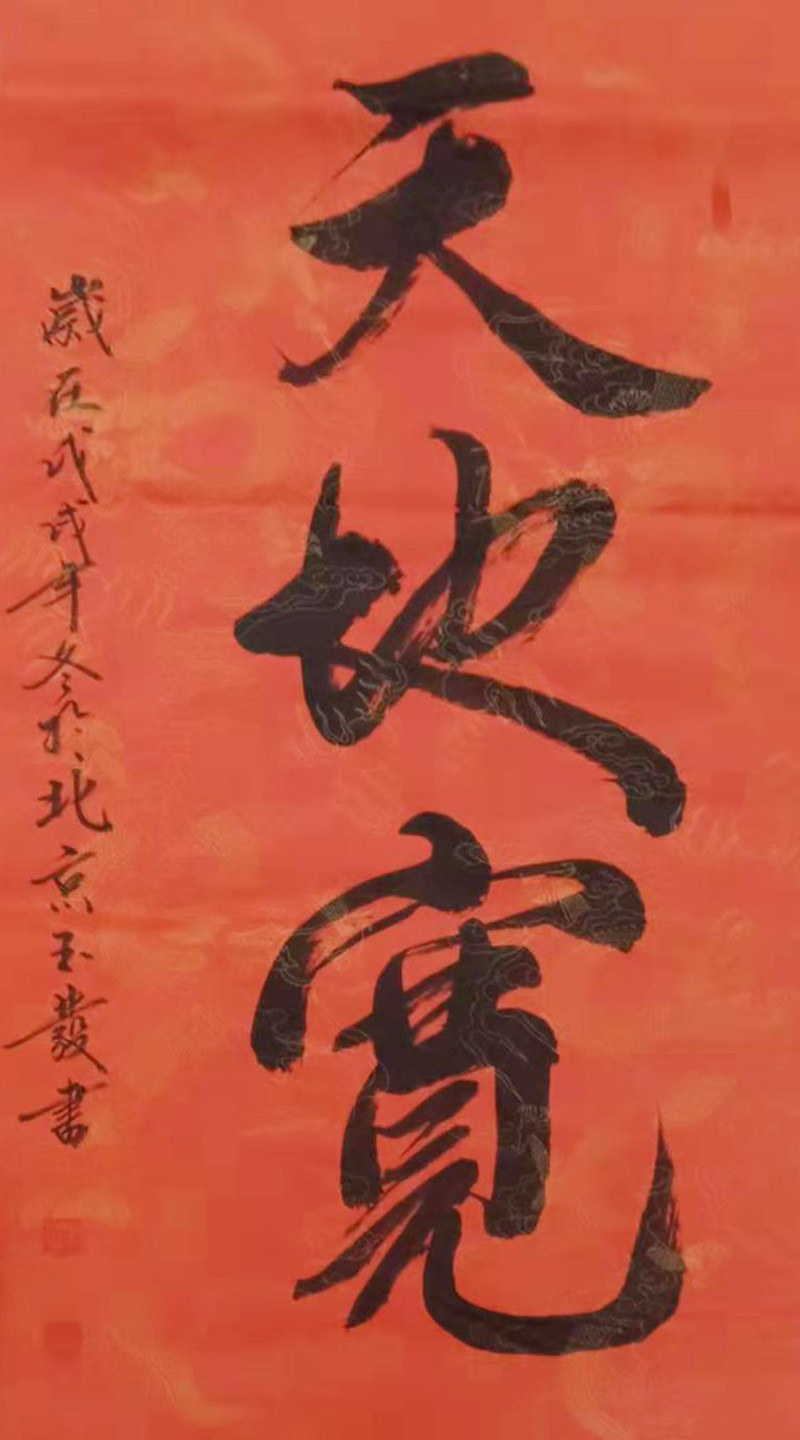 天地寬
歲在戊戌年冬於北京玉發書